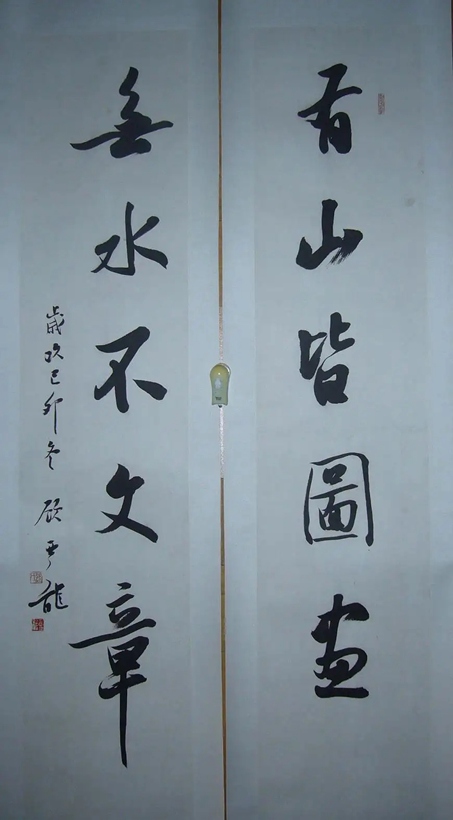 有山皆圖畫
無水不文章
歲次己卯冬 顾雲龍